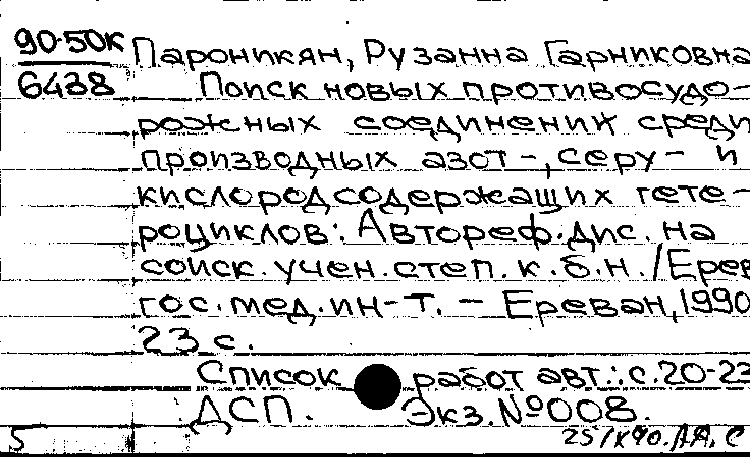 90-50к
6438
Пароникян, Рузанна Гарниковна
Поиск новых противосудо-
рожных соединений среди
производных азот-, серу- и
кислородсодержащих гете-
роциклов: Автореф. дис. на
соиск. учен. степ. к.б.н. / Ерев
гос. мед. ин-т. - Ереван, 1990
23 с.
Список работ авт.: с. 20-23
ДСП. Экз. №008.
5